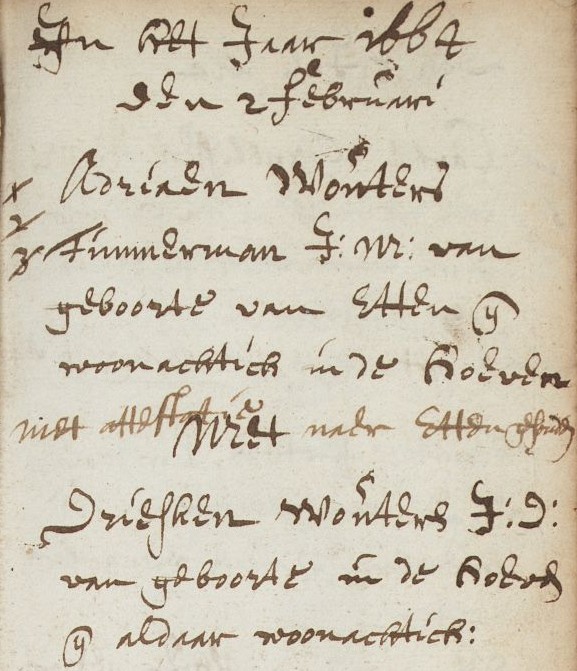 In Het Jaar 1664
den 2 februari
Adriaen Wouters
Timmerman J: M: van
geboorte van Etten en
woonachtich in de Hoeven
met attestatie naer Etten
Met
Driesken Wouters J: D:
van geboorte in de Hoeve
en aldaar woonachtich: